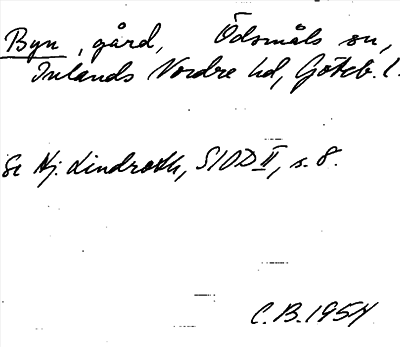 Byn, gård, Ödsmåls sn,
Inlands Nordre hd, Göteb. l.
Se Hj. Lindroth, SIOD II, s. 8.
C.B. 1954